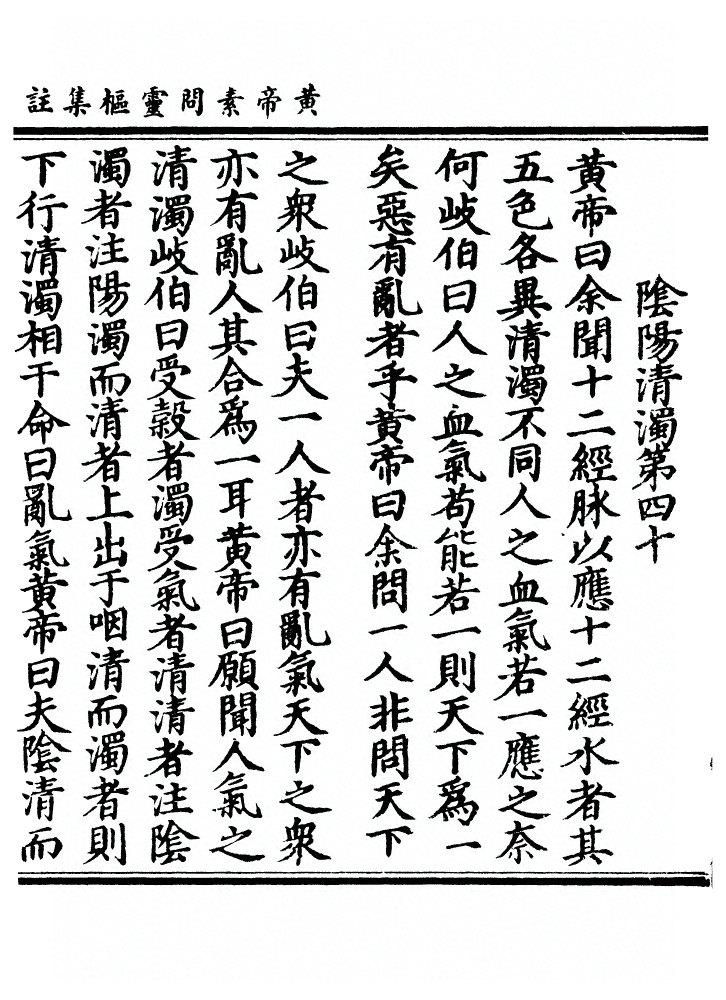 黃帝素問靈樞集註
陰陽清濁第四十
黃帝曰余聞十二經脉以應十二經水者其
五色各異清濁不同人之血氣若一應之奈
何岐伯曰人之血氣苟能若一則天下爲一
矣惡有亂者乎黃帝曰余問一人非問天下
之衆岐伯曰夫一人者亦有亂氣天下之衆
亦有亂人其合爲一耳黃帝曰願聞人氣之
清濁岐伯曰受穀者濁受氣者清清者注陰
濁者注陽濁而清者上出于咽清而濁者則
下行清濁相干命曰亂氣黃帝曰夫陰清而